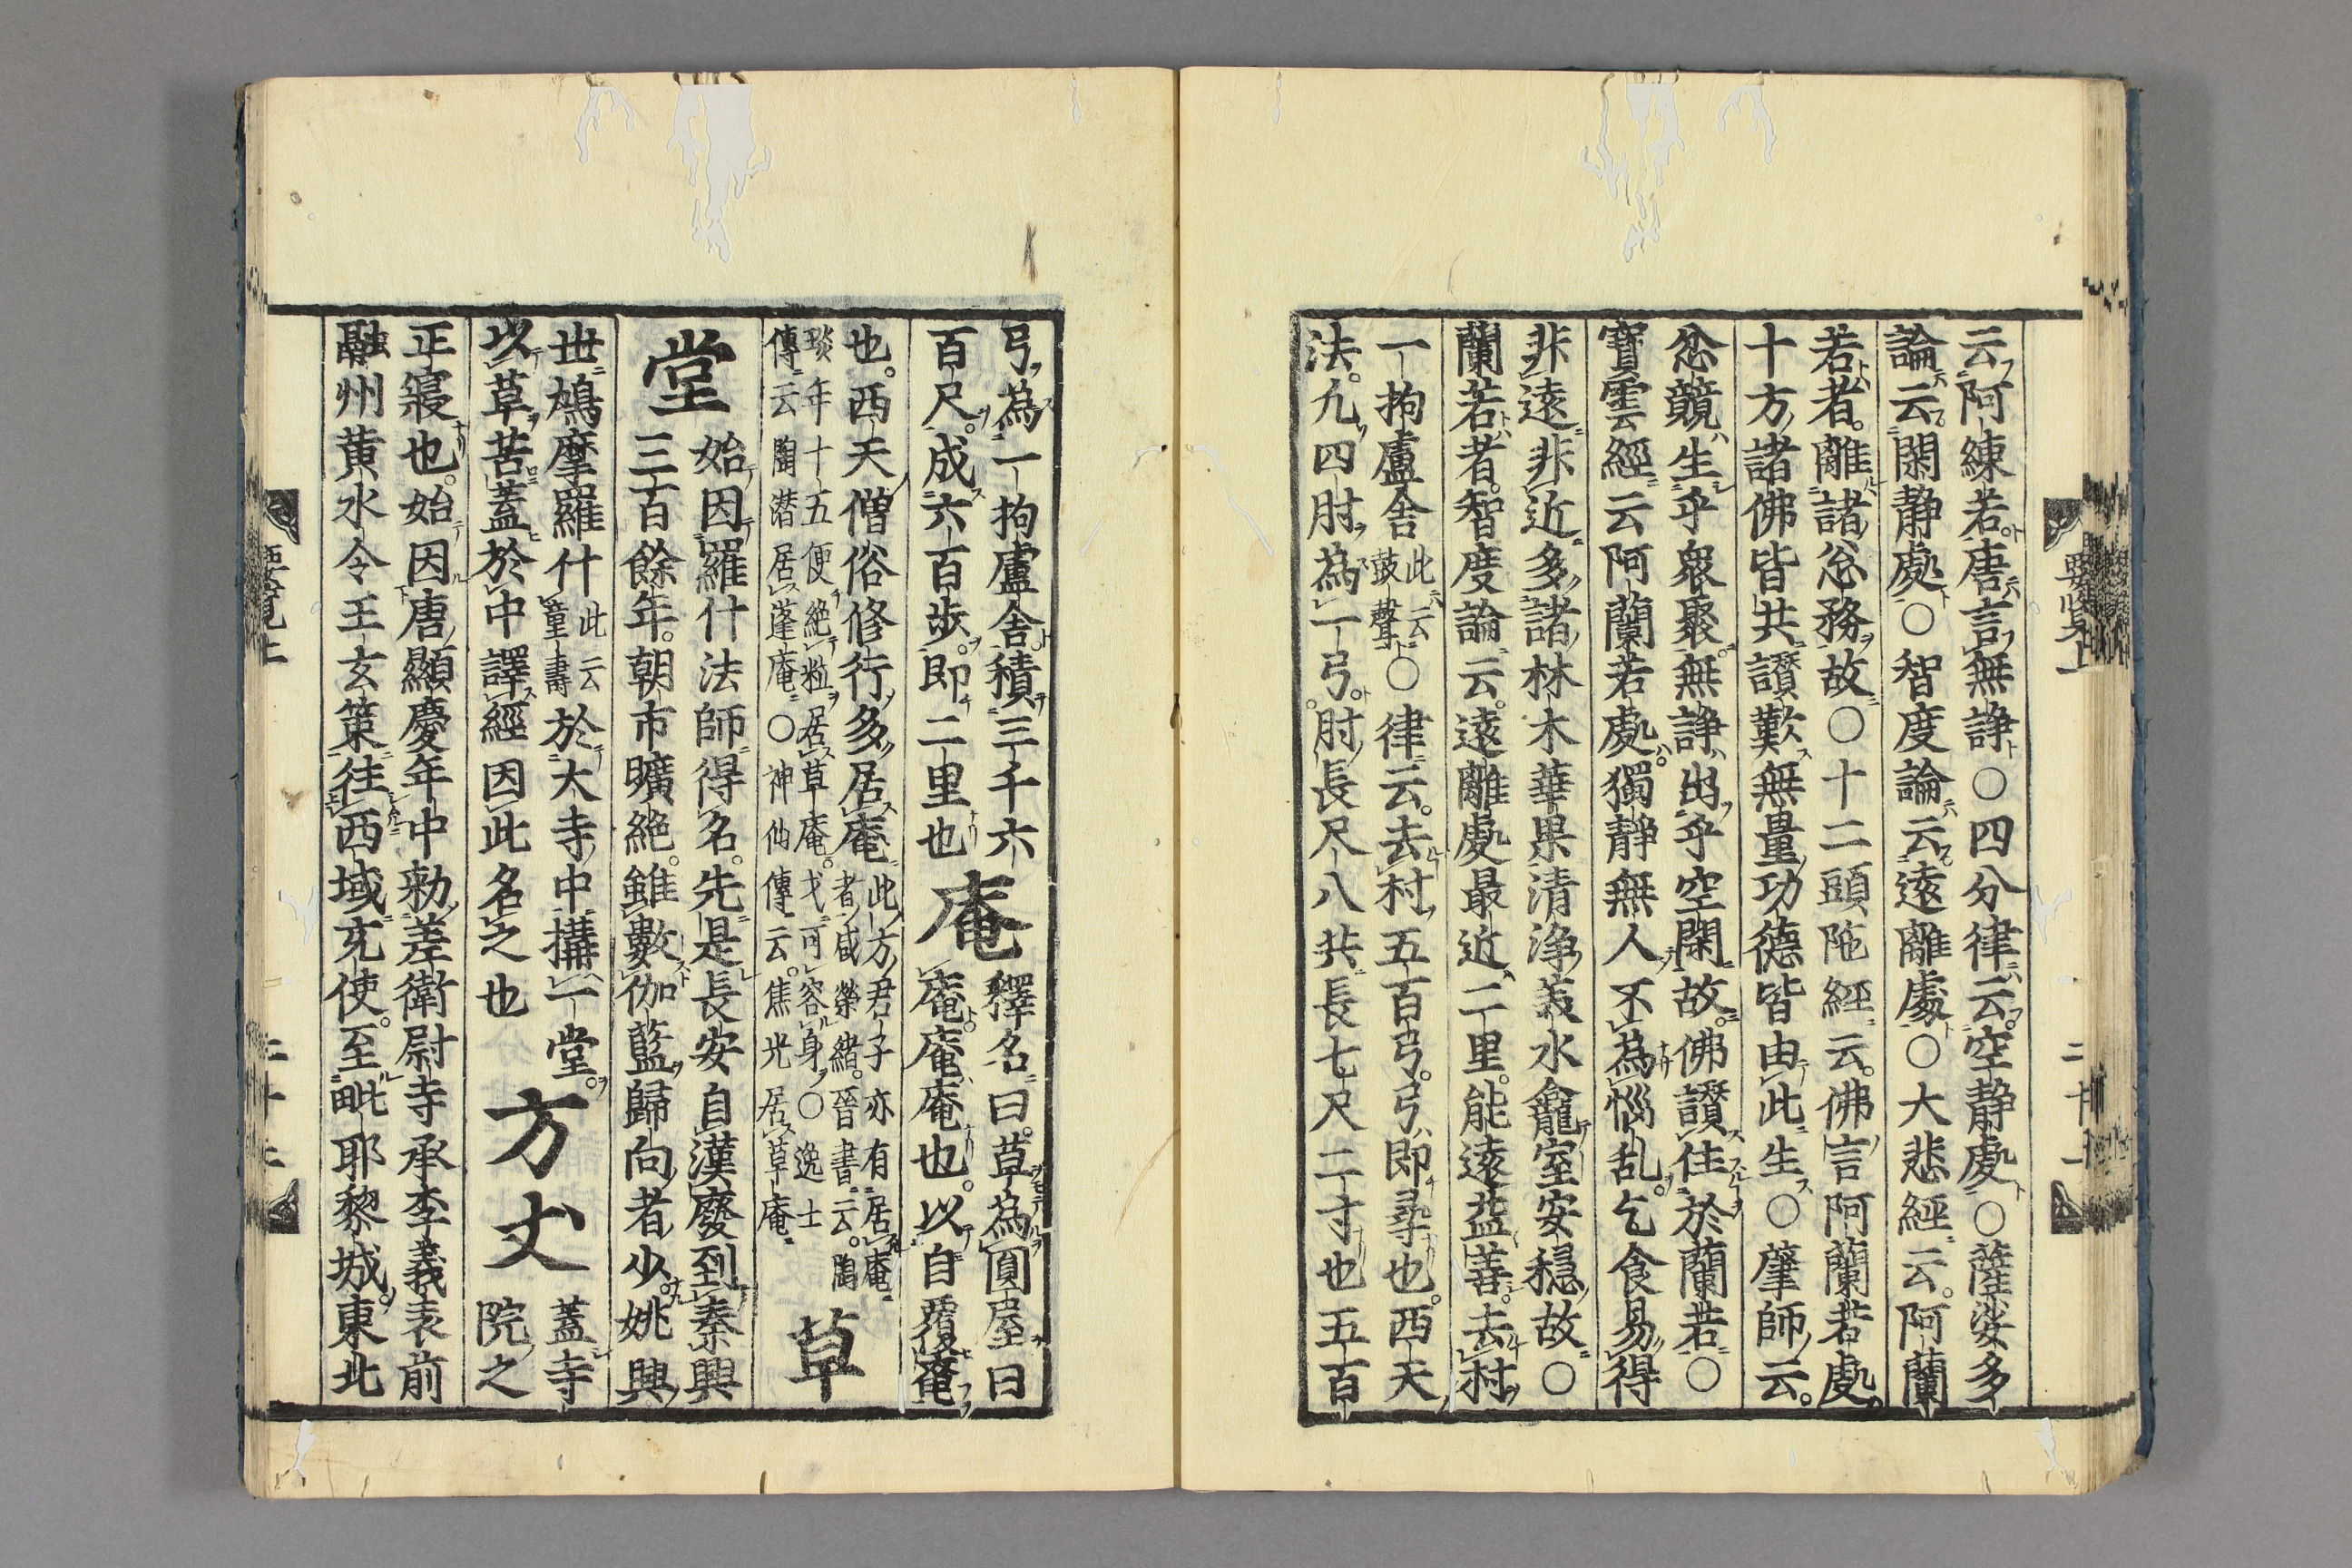 要覽上
云阿練若唐言無諍○四分律云空静處○薩婆多
論云閑静處○智度論云遠離處○大悲經云阿蘭
若者離諸忿務故○十二頭陁經云佛言阿蘭若處
十方諸佛皆共讃歎無量功德皆由此生○肇師云
忿競生乎衆聚無諍出乎空閑故佛讃住於蘭若○
寶雲經云阿蘭若處獨静無人不為惱乱乞食易得
非遠非近多諸林木華果清淨美水龕室安穏故○
蘭若者智度論云遠離處最近二里能遠益善去村
一拘盧舍此云鼓聲○律云去村五百弓弓即尋也西天
法九四肘為一弓肘長尺八共長七尺二寸也五百
弓為一拘盧舍積三千六
百尺成六百歩即二里也
庵
釋名曰草為圓屋曰
庵庵庵也以自覆奄
也西天僧俗修行多居庵
此方君子亦有居庵
者咸榮緒晉書云陶
琰年十五便絶粒居草庵才可容身○逸士
傳云陶潜居蓬庵○神仙傳云焦光居草庵
草
堂
始因羅什法師得名先是長安自漢廢到秦興
三百餘年朝市曠絶雖數伽藍歸向者少姚興
世鳩摩羅什此云童壽於大寺中搆一堂
以草苫蓋於中譯經因此名之也
方丈
蓋寺
院之
正寢也始因唐顯慶年中勅差衛尉寺承李義表前
融州黄水令王玄策往西域充使至毗耶黎城東北
要覽上